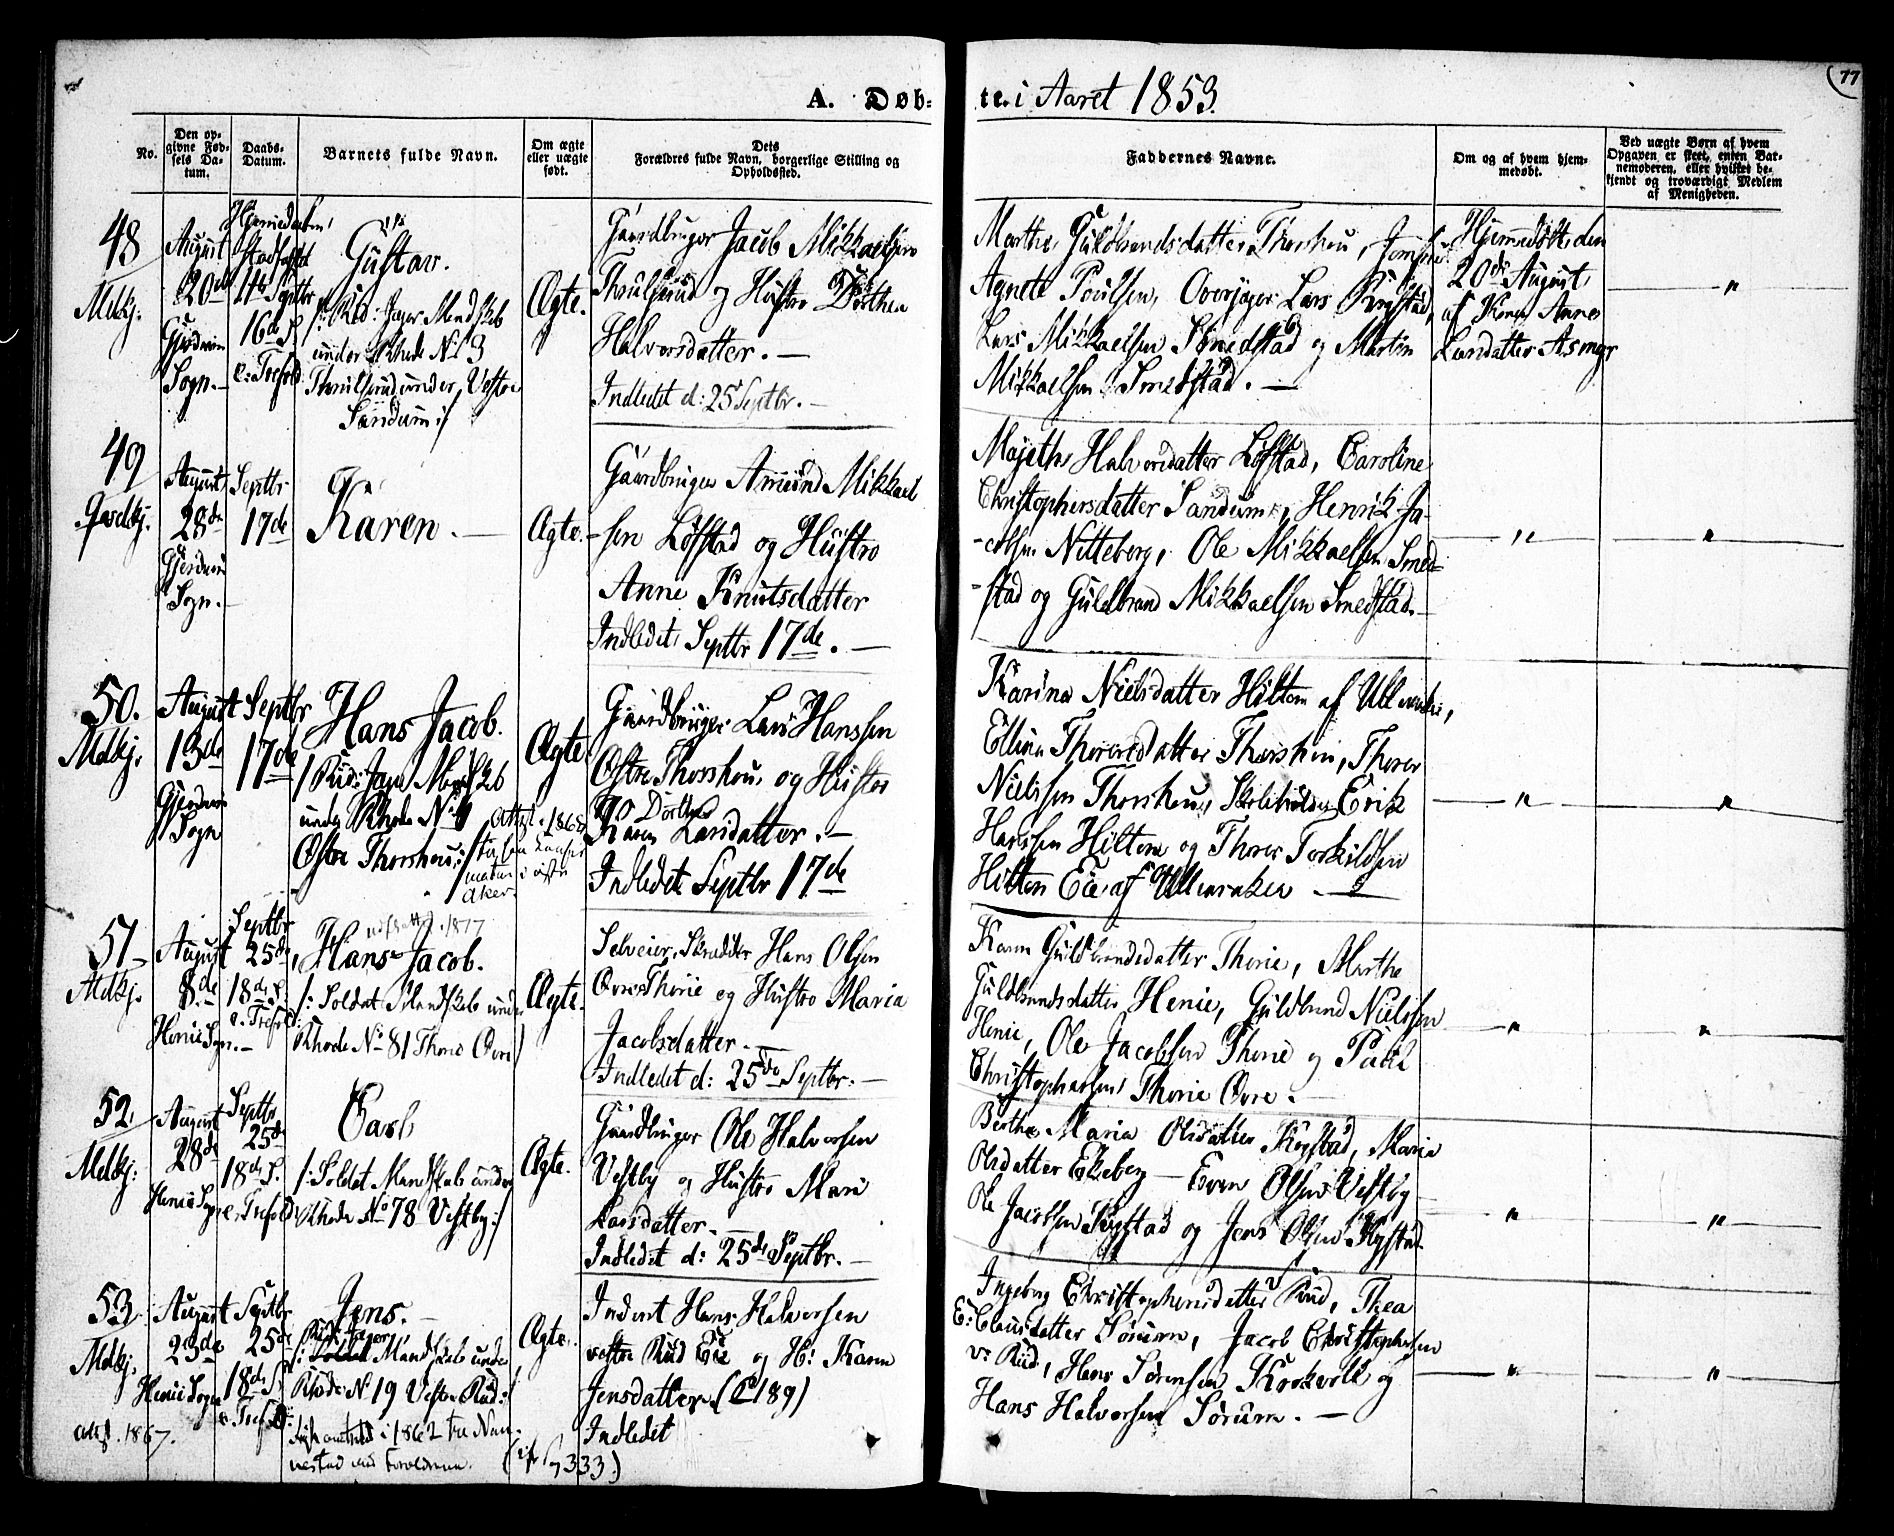 77
A. Døb:
te. i Aaret 1853.
No.
Den op-
givne Fød-
sels Da-
tum.
Daabs-
Datum.
Barnets fulde Navn.
Om ægte
eller uægte
født.
Dets
Forældres fulde Navn, borgerlige Stilling og
Opholdssted.
Faddernes Navne.
Om og af hvem hjem-
medøbt.
Ved uægte Børn af hvem
Opgaven er skeet, enten Bar-
nemoderen, eller hvilket be-
kjendt og troværdigt Medlem
af Menigheden.
48
Mdkj.
August
20de
Gjerdrum
Sogn.
Hjemmedøbt,
Stadfæstet
11te Septbr
16de S.
e: Trefold:
Gustav.
/: Rid: Jæger Mandskab
under Rhode No 3
Thoulsrud under Vestre
Sandum :/
Ægte.
Gaardbruger Jacob Mikkaelsen
Thoulsrud og Hustro Dorthea
Halvorsdatter. —
Indledet d: 25 Septbr. —
Marthe Guldbrandsdatter Thorshou, Jomfrue
Agnete Poulsen, Overjæger Lars Rystad,
Lars Mikkaelsen Smedstad og Martin
Mikkaelsen Smedstad. —
Hjemmedøbt den
20de August,
af Kone Anne
Larsdatter Asmyr
"
49
Qvdkj.
August
28de
Gjerdrum
Sogn. —
Septbr
17de
Karen. —
Ægte. —
Gaardbruger Amund Mikkael
sen Løfstad og Hustro
Anne Knutsdatter
Indledet Septbr 17de. —
Majethe Halvorsdatter Løfstad, Caroline
Christophersdatter Sandum, Henrik Ja-
cobsen Nitteberg, Ole Mikkaelsen Smed-
stad og Guldbrand Mikkaelsen Smedstad. —
"
"
50.
Mdkj.
August
13de
Gjerdrum
Sogn
Septbr
17de
Hans Jacob.
/: Rid: Jæger Mandskab
under Rhode No 4
Østre Thorshou :/
Attest 1868
Aker.
Ægte
Gaardbruger Lars Hanssen
Østre Thorshou og Hustro
Dorthea
Karen Larsdatter. —
Indledet Septbr 17de
Karina Nielsdatter Hilton af Ullensaker,
Ellina Thoresdatter Thorshou, Thorer
Nielssen Thorshou, Skoleholder Erik
Hanssen Hilton og Thorer Torkildsen
Hilton Eie af Ullensaker. —
"
"
51
Mdkj.
August
8de
Henie Sogn. —
Septbr
25de,
18de S.
e. Trefold:
udskattet. 1877
Hans Jacob.
/: Soldat Mandskab under
Rhode No 81 Thorie Øvre/
Ægte.
Selveier, Skrædder Hans Olsen
Øvre Thorie og Hustro Maria
Jacobsdatter. —
Indledet d: 25de Septbr. —
Karen Guldbrandsdatter Thorie, Marthe
Guldbrandsdatter Henie, Guldbrand Nielssen
Henie, Ole Jacobsen Thorie og Paul
Christophersen Thorie Øvre. —
"
"
52
Mdkj:
August
28de
Henie Sogn
Septbr
25de
18de S.
e. Trefold:
Carl
/: Soldat Mandskab under
Rhode No 78 Vestby :/
Ægte.
Gaardbruger Ole Halvorsen
Vestby og Hustro Mari
Larsdatter. —
Indledet d: 25de Septbr. —
Berthe Maria Olsdatter Rystad, Maria
Olsdatter Ekeberg — Even Olsen Vestby
Ole Jacobsen Rystad og Jens Olsen Rystad.
"
"
53
Mdkj.
Attest. 1867.
August
23de
Henie Sogn
Septbr
25de
18de S.
e. Trefold:
Jens. —
Rid: Jæger
/: Soldat Mandskab under
Rhode No 19 Vestre Rud :/
i 1862 fra Nan-
nestad med Forældrene. (
333)
Ægte.
Inderst Hans Halvorsen
vestre Rud Eie og H: Karen
Jensdatter (C 189)
Indledet
Ingeborg Christophersdatter Rud, Thea
E: Clausdatter Sørum, Jacob Christophersen
v: Rud, Hans Sørensen Krokvold og
Hans Halvorsen Sørum. —
"
"